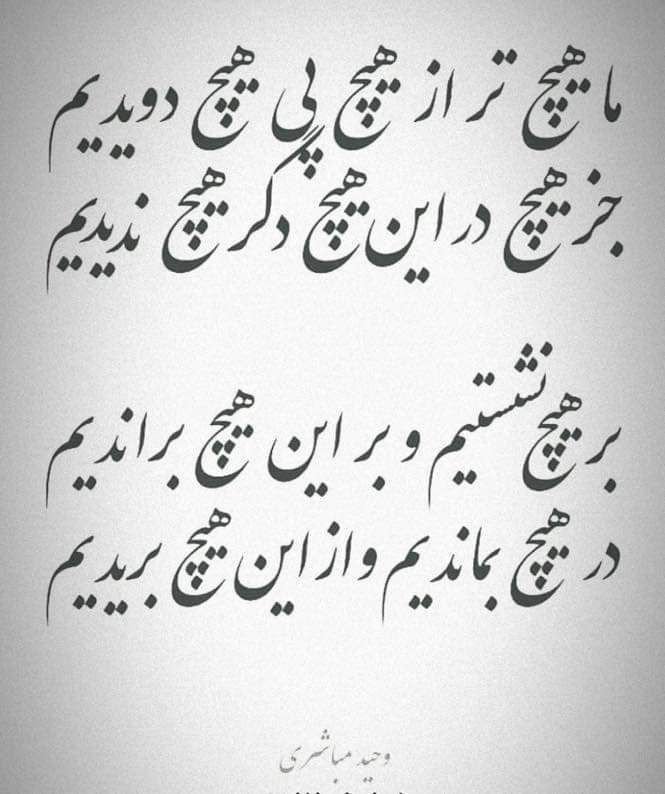 ما هیچ تر از هیچ پی هیچ دویدیم
جز هیچ در این هیچ دگر هیچ ندیدیم
بر هیچ نشستیم و بر این هیچ براندیم
در هیچ بماندیم و از این هیچ بریدیم
وحید مباشری